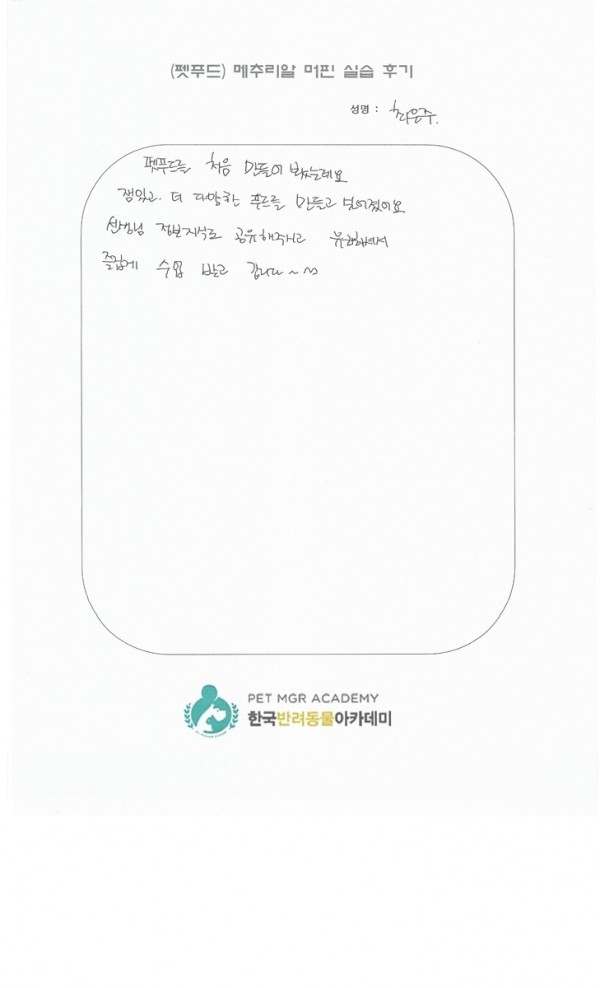 (펫푸드) 메추리알 머핀 실습 후기
성명 : 최은주.
펫푸드를 처음 만들어 봤는데요
잼있고. 더 다양한 푸드를 만들고 싶어졌어요
선생님 정보지식도 공유해주시고 유쾌해서
즐겁게 수업 받고 갑니다~^^
PET MGR ACADEMY
한국반려동물아카데미